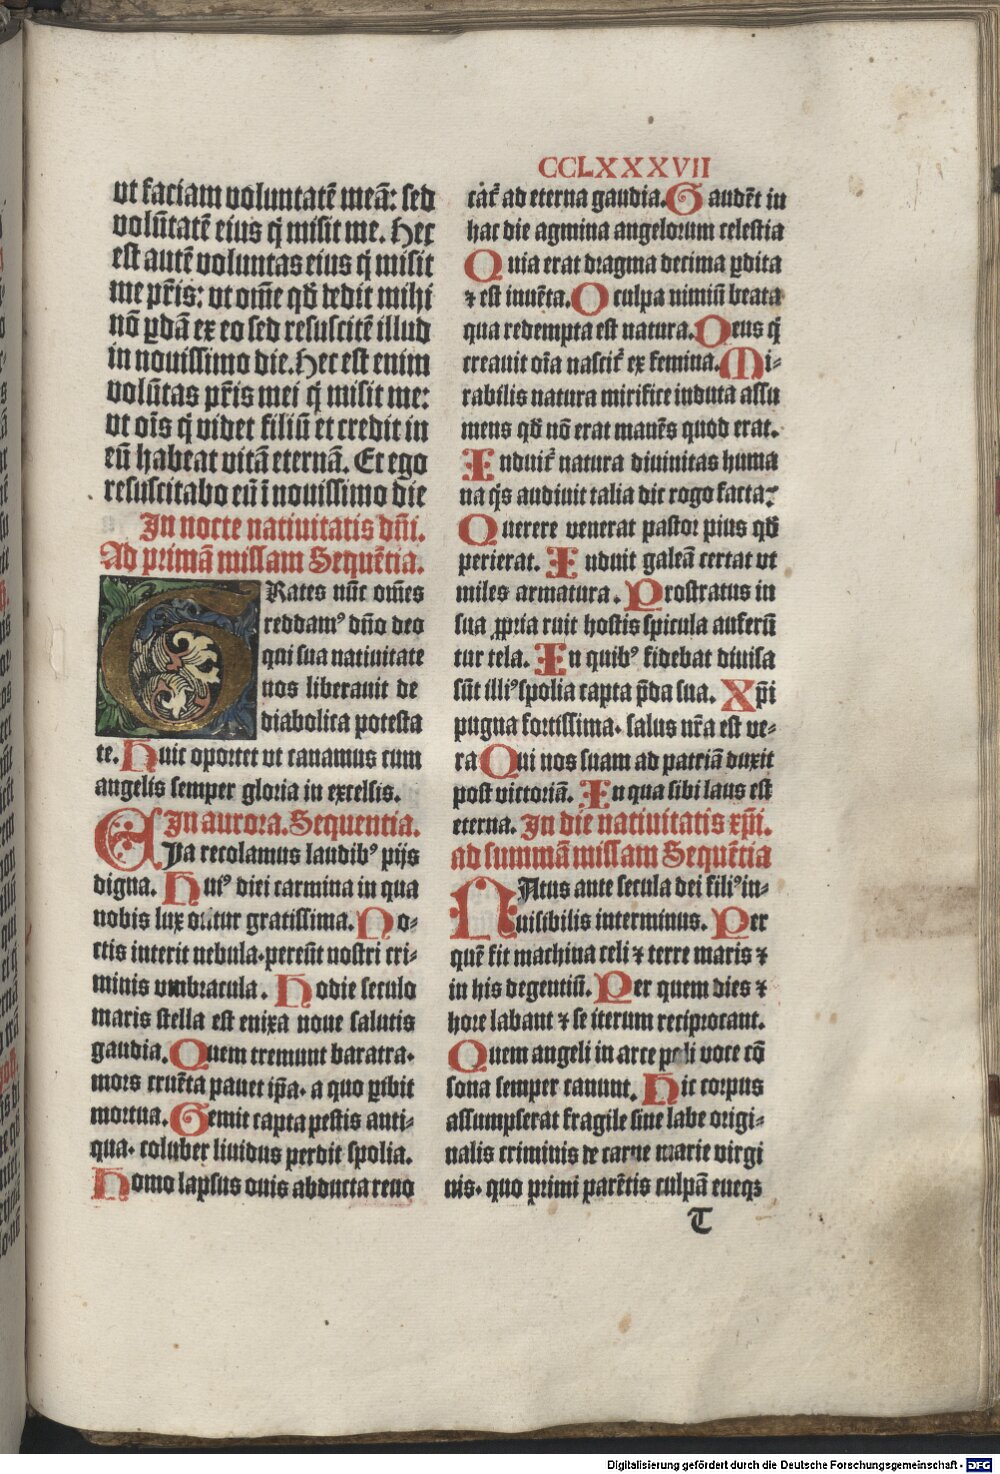 CCLXXXVII
ut faciam voluntatē meā: sed
volūtatē eius q̄ misit me. Hec
est autē voluntas eius q̄ misit
me pr̄is: ut om̄e qđ dedit mihi
nō ꝑdā ex eo sed resuscitē illud
in nouissimo die. Hec est enim
volūtas pr̄is mei q̄ misit me:
ut oīs q̄ videt filiū et credit in
eū habeat vitā eternā. Et ego
resuscitabo eū ī nouissimo die
In nocte natiuitatis dn̄i.
Ad primā missam Sequētia.
GRates nūc om̄es
reddamꝰ dn̄o deo
qui sua natiuitate
nos liberauit de
diabolica potesta
te. Huic oportet ut canamus cum
angelis semper gloria in excelsis.
In aurora. Sequentia.
EIa recolamus laudibꝰ pijs
digna. Huiꝰ diei carmina in qua
nobis lux oritur gratissima. No-
ctis interit nebula. pereūt nostri cri-
minis umbracula. Hodie seculo
maris stella est enixa noue salutis
gaudia. Quem tremunt baratra.
mors cruēta pauet ip̄a. a quo ꝑibit
mortua. Gemit capta pestis anti-
qua. coluber liuidus perdit spolia.
Homo lapsus ouis abducta reuo
cāt̄ ad eterna gaudia. Gaudēt in
hac die agmina angelorum celestia
Quia erat dragma decima ꝑdita
⁊ est inuēta. O culpa nimiū beata
qua redempta est natura. Deus q̄
creauit oīa nascit̄ ex femina. Mi-
rabilis natura mirifice induta assu
mens qđ nō erat manēs quod erat.
Induit̄ natura diuinitas huma
na q̄s audiuit talia dic rogo facta?
Querere venerat pastor pius qđ
perierat. Induit galeā certat ut
miles armatura. Prostratus in
sua ꝓpria ruit hostis spicula auferū
tur tela. In quibꝰ fidebat diuisa
sūt illiꝰ spolia capta p̄da sua. Xp̄i
pugna fortissima. salus nr̄a est ve-
ra Qui nos suam ad patriā duxit
post victoriā. In qua sibi laus est
eterna. In die natiuitatis xp̄i.
ad summā missam Sequētia
NAtus ante secula dei filiꝰ in-
uisibilis interminus. Per
quē fit machina celi ⁊ terre maris ⁊
in his degentiū. Per quem dies ⁊
hore labant ⁊ se iterum reciprocant.
Quem angeli in arce poli voce cō
sona semper canunt. Hic corpus
assumpserat fragile sine labe origi-
nalis criminis de carne marie virgi
nis. quo primi parētis culpā eueqꝫ
T
Digitalisierung gefördert durch die Deutsche Forschungsgemeinschaft - DFG